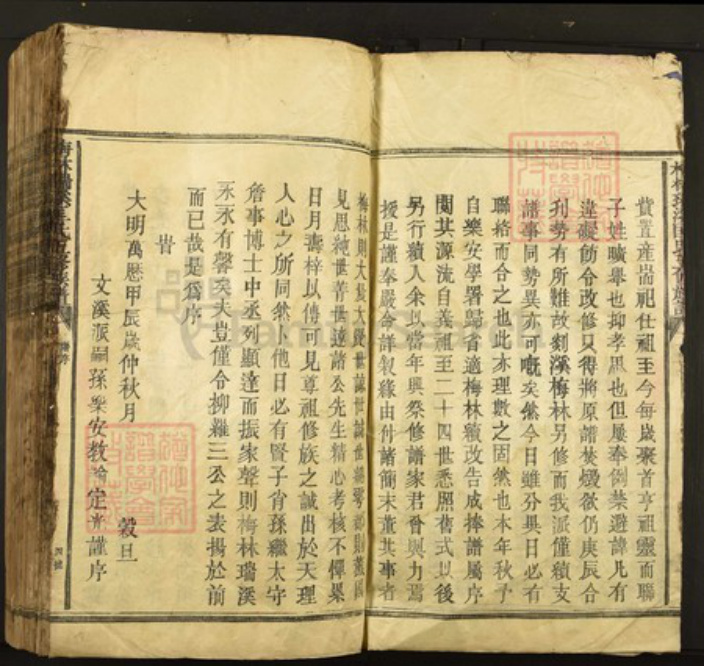 貲置產耑祀仕祖至今每歲聚首亨祖靈而聯
子姓曠舉也抑孝思也但屢奉例禁避諱凡有
違礙飭令改修只得將原譜焚燬欲仍庚辰合
刋勢有所難故剡溪梅林另修而我派僅續支
譜事同勢異亦可嘅矣然今日雖分異日必有
聯絡而合之也此亦理數之固然也本年秋予
自樂安學署歸省適梅林續改告成捧譜屬序
閱其源流自義祖至二十四世悉照舊式以後
另行續人余以當年興祭修譜家君曾與力焉
援是謹奉嚴命詳叙緣由付諸簡末董其事者
梅林則大
見思純世菁世遠諸公先生精心考核不憚暴
日月壽梓以傳可見尊祖修族之誠出於天理
人心之所同然卜他日必有賢子肖孫繼太守
詹事博士中丞列顯達而振家聲則梅林瑞溪
永永有馨矣夫豈僅令抑齋三公之表揚於前
而已哉是爲序
旹
大明萬曆甲辰歲仲秋月 穀旦
文溪派嗣孫樂安教諭定光謹序
四號